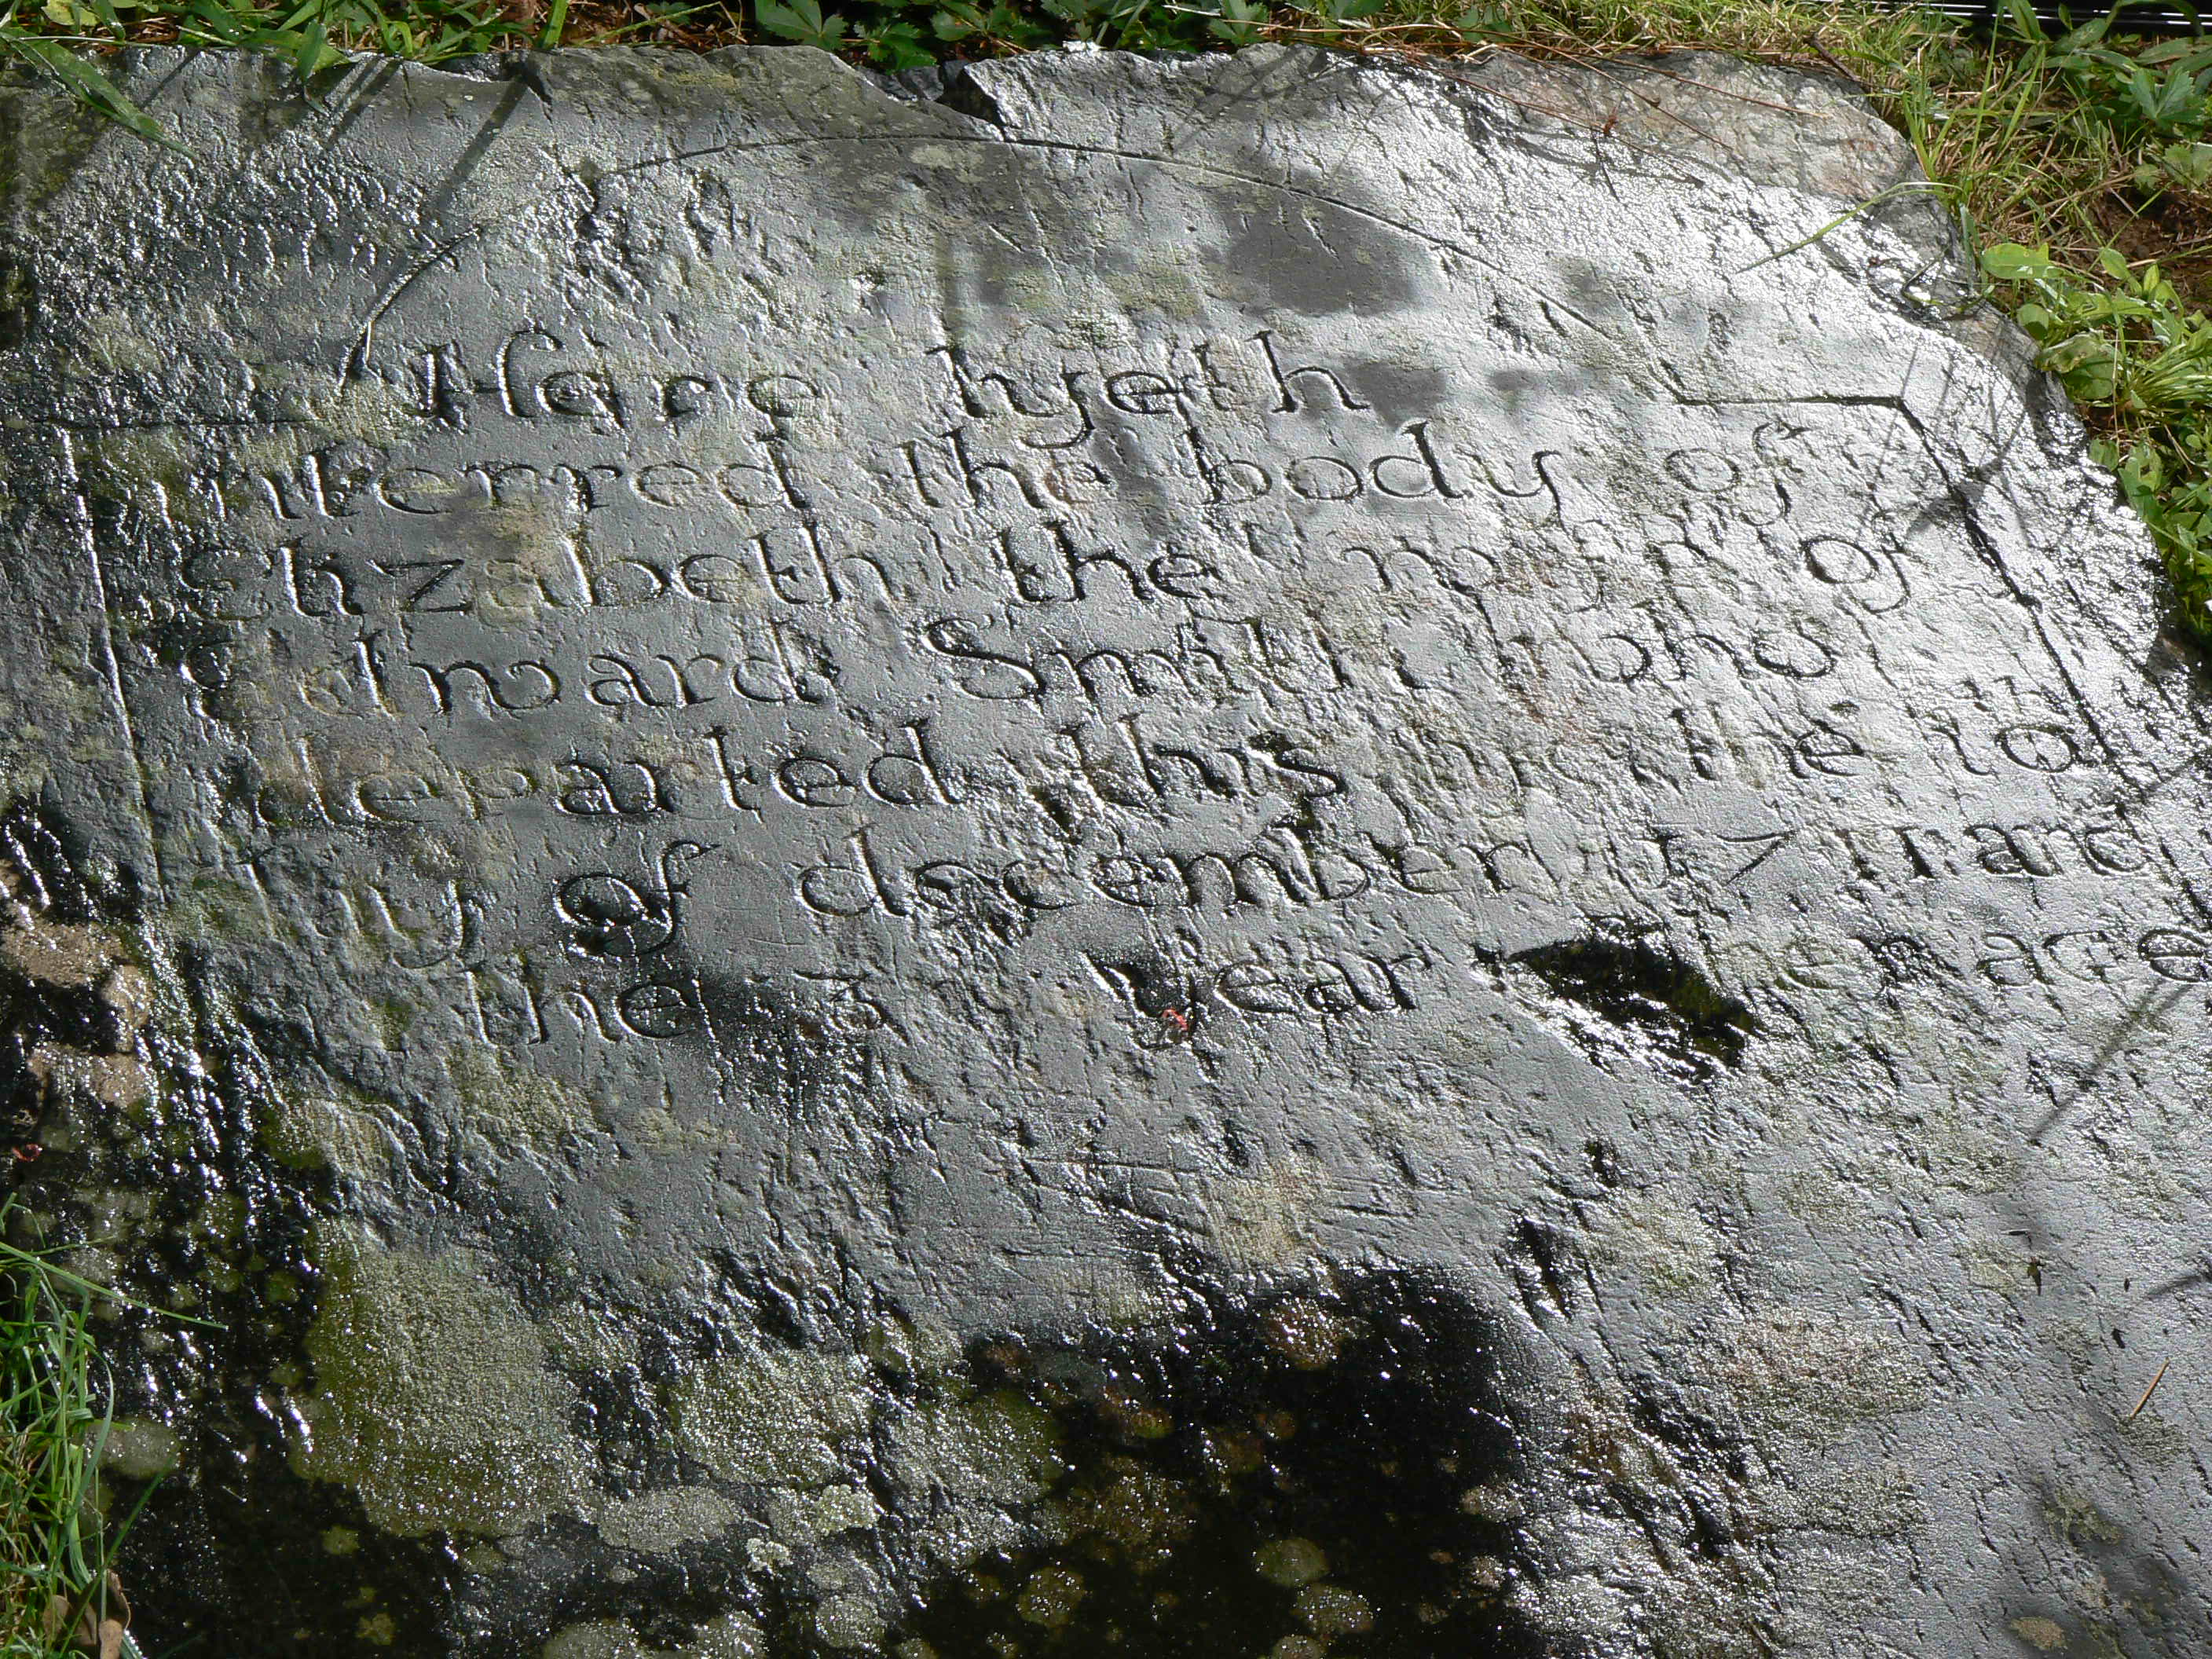 Here lyeth
interred the body of
Elizabeth the of
Edward Smith who
departed this life the 10
day of december 1711 and
the year age